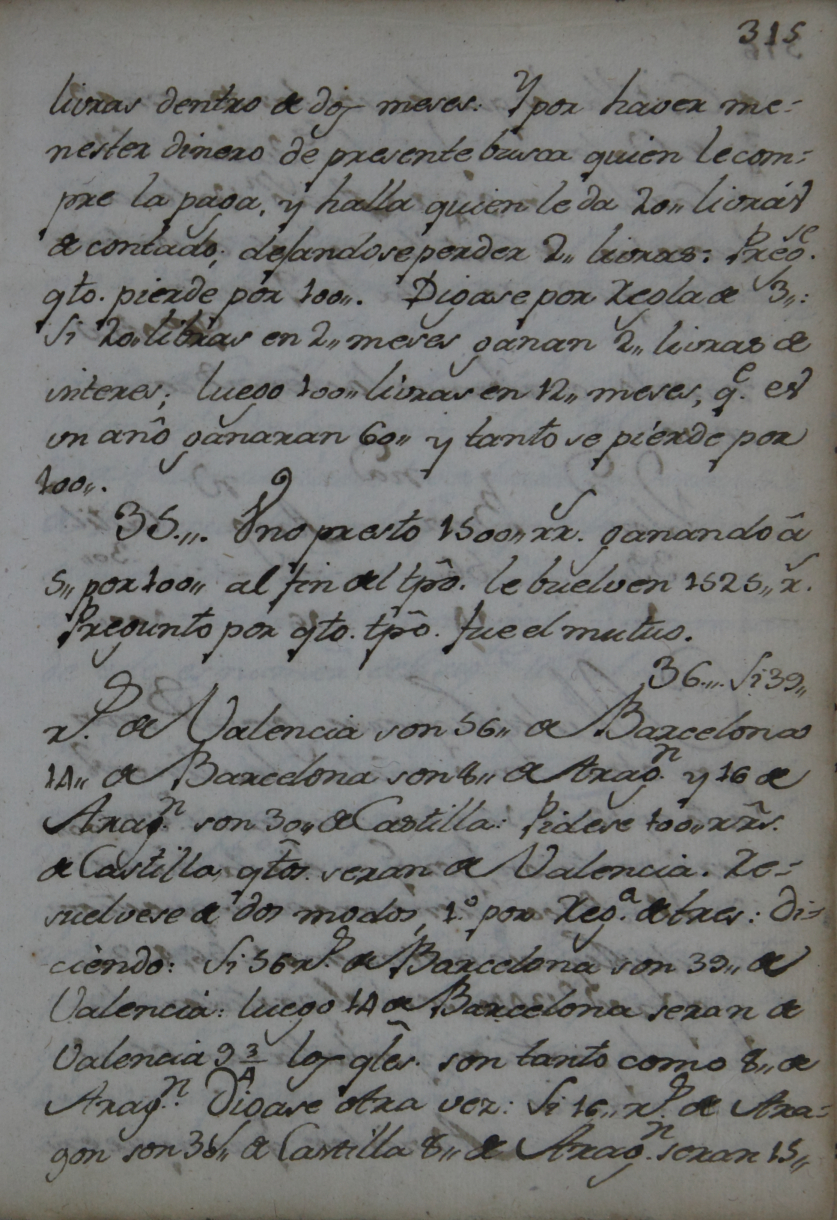 315
livras dentro de dos meses: Y por haver me=
nester dinero de presente busca quien le com=
pre la paga, y halla quien le da 20,, livras
de contado; dejandose perder 2,, livras: Preg.se
qto. pierde por 100,,. Digase por Regla de 3,,:
Si 20,, libras en 2,, meses ganan 2,, livras de
interes; luego 100,, livras en 12,, meses, q.e es
un año ganaran 60,, y tanto se pierde por
100,,.
35,,. Uno presto 1500,, rr. ganando â
5,, por 100,, al fin del tpô. le buelven 1525,, r.
Pregunto por qto. tpô. fue el mutuo.
36,,. Si 39,,
r.s de Valencia son 56,, de Barcelona
14,, de Barcelona son 8,, de Arag.n y 16 de
Arag.n son 30,, de Castilla: Pidese 100,, rrs.
de Castilla qtôs. seran de Valencia. Re=
suelvese de dos modos, 1.º por Reg.a de tres: Di=
ciendo: Si 56 r.s de Barcelona son 39,, de
Valencia: luego 14 de Barcelona seran de
Valencia 9 3/4 los qlês. son tanto como 8,, de
Arag.n Digase otra vez: Si 16,, r.s de Ara=
gon son 30,, de Castilla 8,, de Arag.n seran 15,,